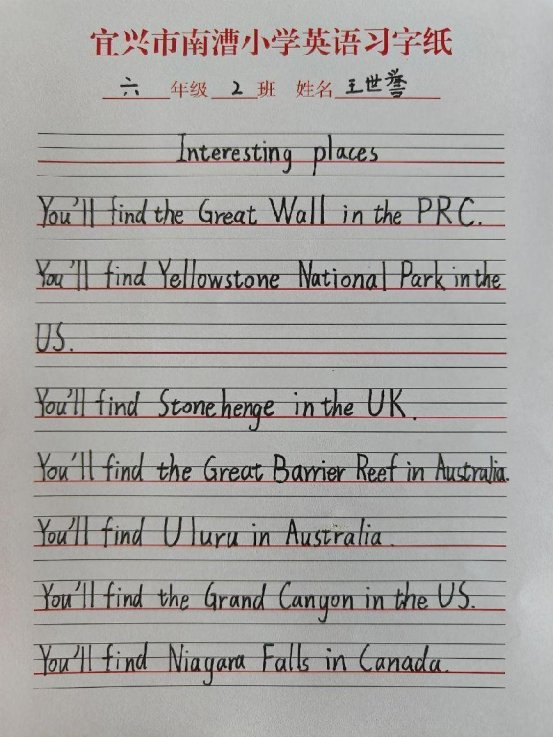 宜兴市南漕小学英语习字纸
六 年级 2 班 姓名 王世誉
Interesting places
You'll find the Great Wall in the PRC.
You'll find Yellowstone National Park in the
US.
You'll find Stonehenge in the UK.
You'll find the Great Barrier Reef in Australia.
You'll find Uluru in Australia.
You'll find the Grand Canyon in the US.
You'll find Niagara Falls in Canada.